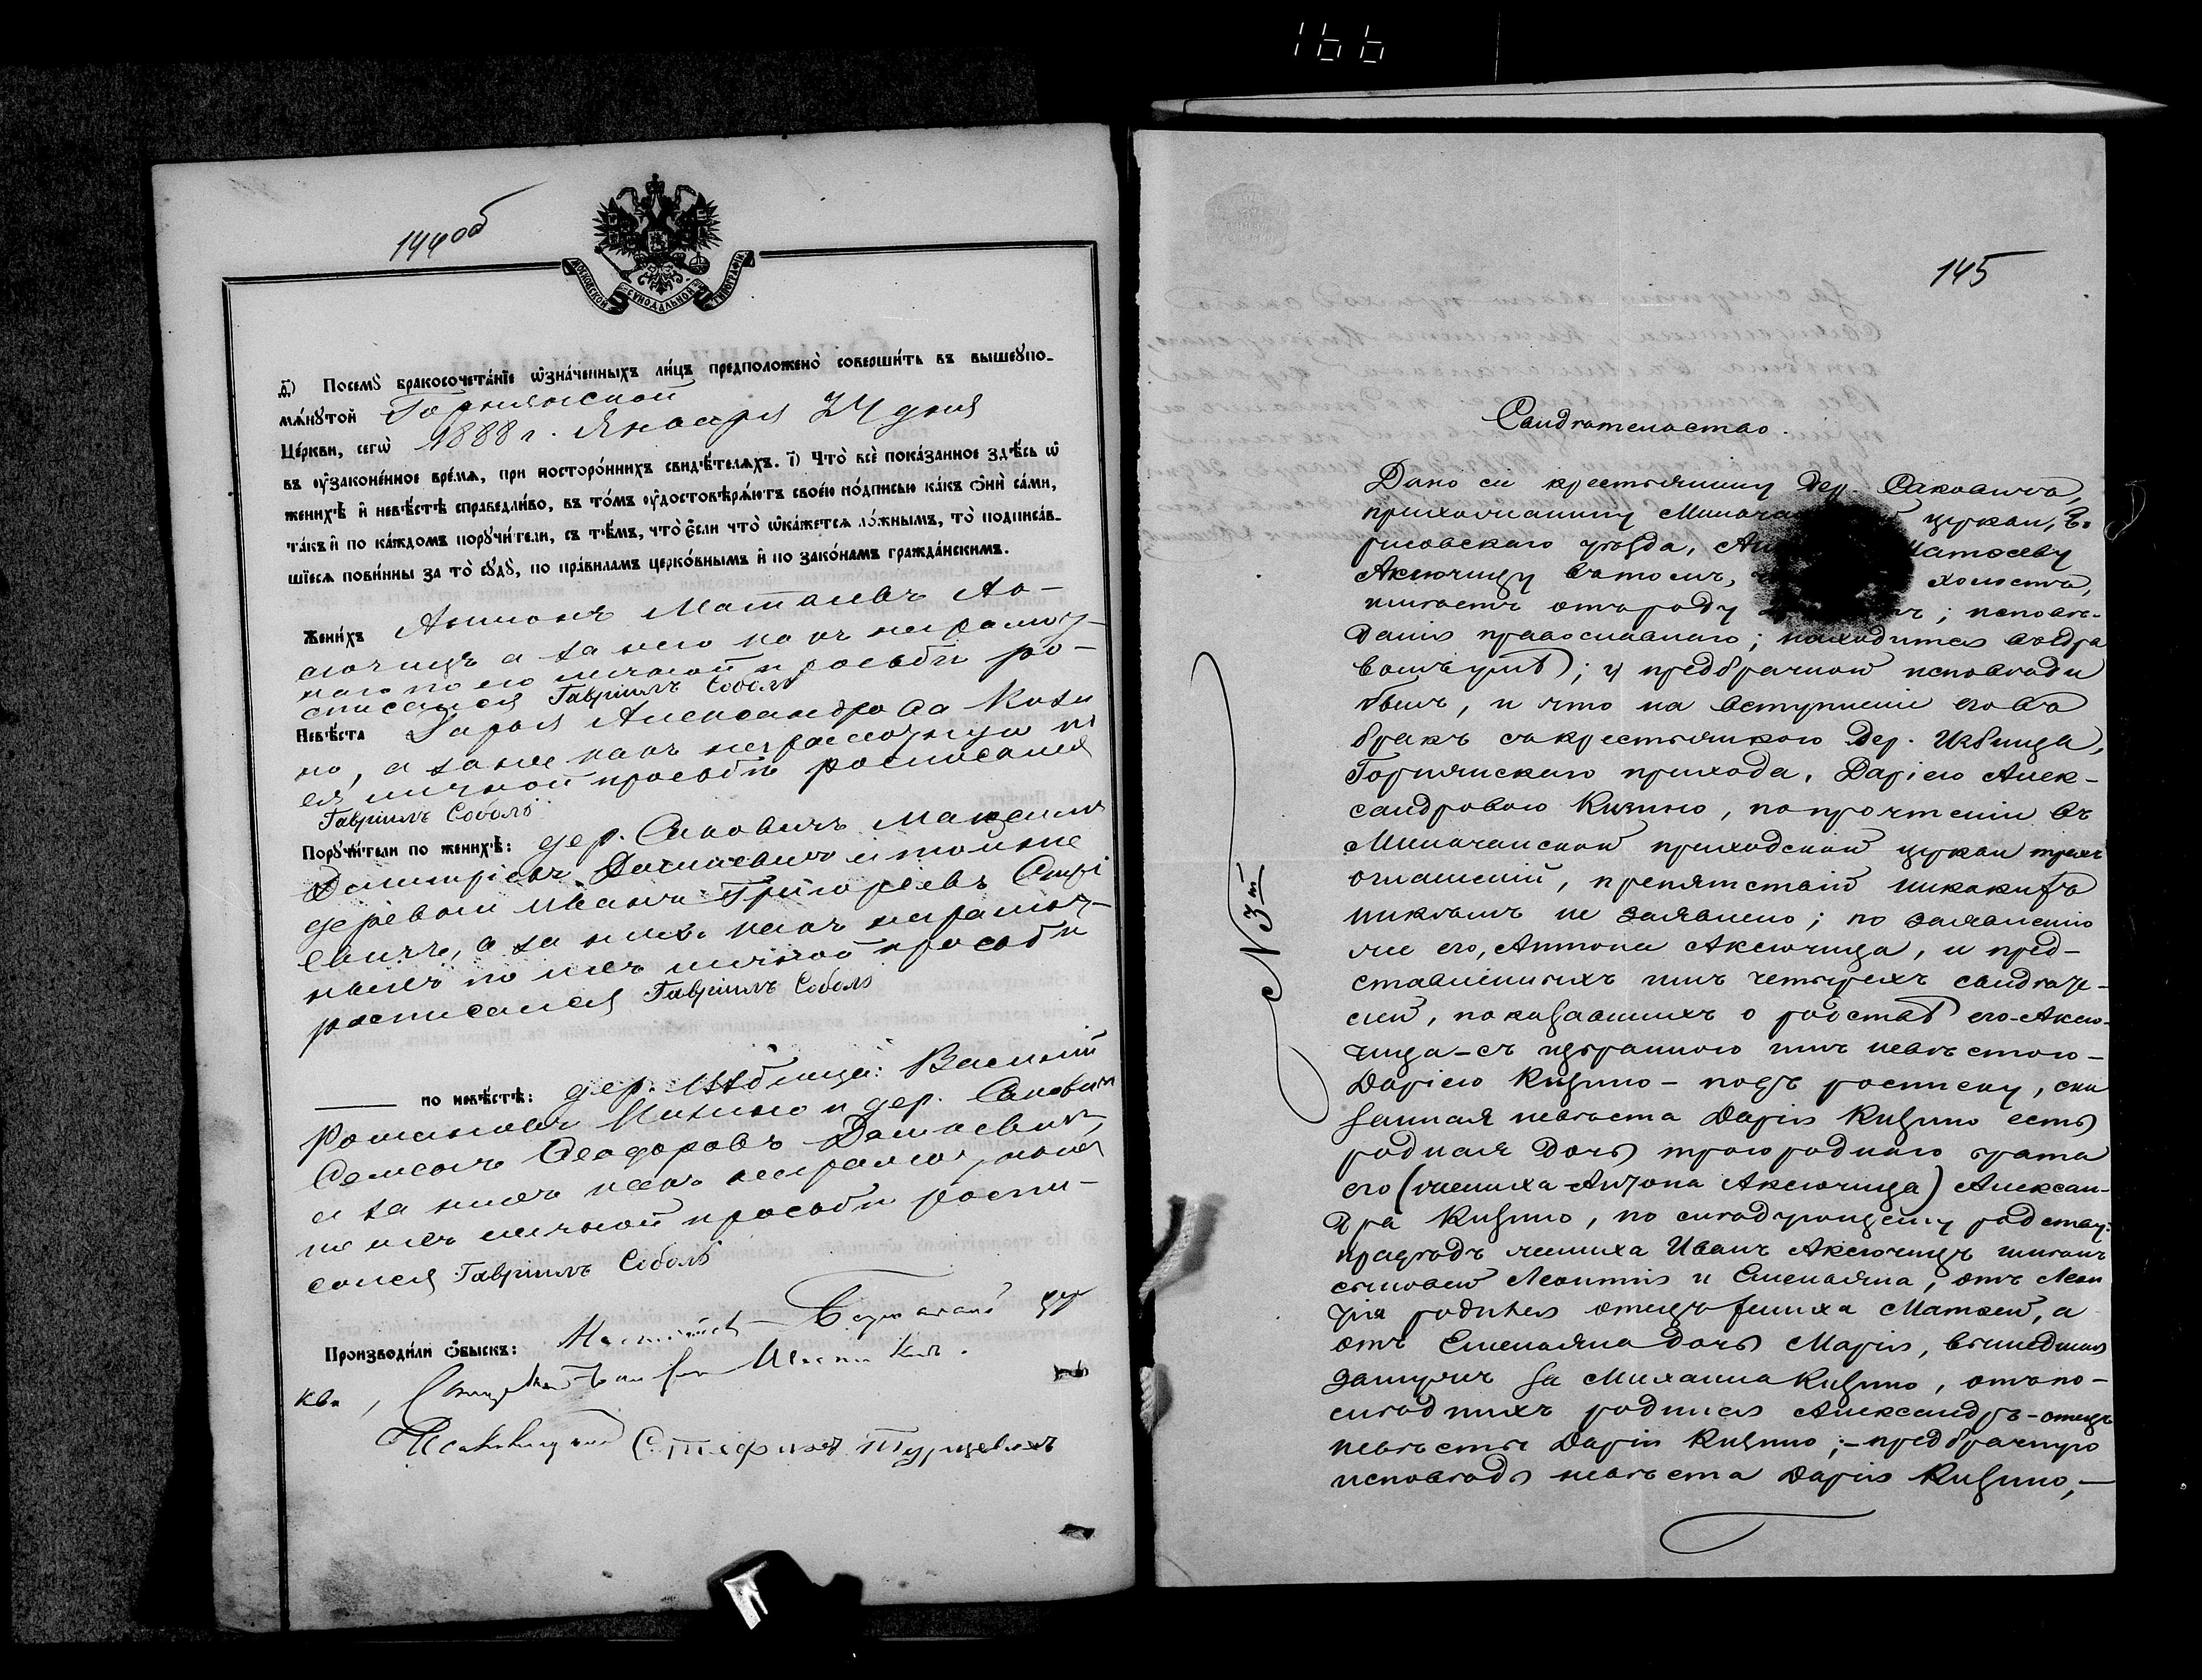 166
144об
МОСКОВСКОЙ СѴНОДАЛЬНОЙ ТИПОГРАФІИ
д҃) Посемꙋ̀ бракосочета́нїе ѡ҆зна́ченныхъ ли́цъ предположено̀ соверши́ть въ вышеꙋпо-
мѧ́нꙋтой Горнянской
Це́ркви, сегѡ̀ 1888 г. Января 24 дня
въ ᲂу҆зако́ненное вре́мѧ, при посторо́ннихъ свидѣ́телѧхъ. і҃) Что̀ всѐ пока́занное здѣ́сь ѡ
женихѣ̀ и҆ невѣ́стѣ справедли́во, въ то́мъ ᲂу҆достовѣрѧ́ютъ своєю по́дписью ка́къ ѻ҆нѝ са́ми,
та́къ и҆ по ка́ждомъ порꙋчи́тели, съ тѣ́мъ, что̀ є҆́сли что̀ ѡ҆ка́жетсѧ ло́жнымъ, то̀ подписа́в-
шїесѧ пови́нны за то̀ сꙋдꙋ̀, по пра́виламъ церко́внымъ и҆ по зако́намъ гражда́нскимъ.
Жени́хъ Антонъ Матѳеевъ Ак-
сючицъ а за него какъ неграмот-
наго по его личной просьбѣ ро-
списался Гавріилъ Соболь
Невѣ́ста Дарья Александрова Кизи
но, а за нее какъ неграмотную по
ея личной просьбѣ росписался
Гавріилъ Соболь
Порꙋчи́тели по женихѣ̀: дер. Саковичъ Максимъ
Димитріевъ и той же
деревни Иванъ Григорьевъ
евичъ, а за нихъ какъ неграмот-
ныхъ по ихъ личной просьбѣ
росписался Гавріилъ Соболь
по невѣ́стѣ: дер. Избища: Василій
Романовъ и дер. Саковичъ
Семенъ Ѳеодоровъ
а за нихъ какъ неграмотныхъ
по ихъ личной просьбѣ роспи-
сался Гавріилъ Соболь
Производи́ли ѻ҆́быскъ:
Стефанъ Турцевичъ
145
Свидѣтельство.
Дано сіе крестьянину дер. Саковичъ,
прихожанину церкви, Бо-
рисовскаго уѣзда, Матѳееву
Аксючицу въ томъ, холостъ,
имѣетъ отъ роду ; исповѣ-
данія православнаго; находится въ здра
вомъ умѣ; у предбрачной исповѣди
былъ, и что на вступленіе его въ
бракъ съ крестьянкою дер. Избища,
Горнянскаго прихода, Даріею Алек-
сандровою Кизино, по прочтеніи въ
Милачанской приходской церкви трехъ
оглашеній, препятствій никакихъ
никѣмъ не заявлено; по заявленію
же его, Антона Аксючица, и пред-
ставленныхъ имъ четырехъ свидѣте-
лей, показавшихъ о родствѣ его-Аксю-
чица-съ избранною имъ невѣстою-
Даріею Кизино - подъ росписку, ска
занная невѣста Дарія Кизино есть
родная дочь троюроднаго брата
его (жениха Антона Аксючица) Алексан-
дра Кизино, по слѣдующему родству:
прадѣдъ жениха Иванъ Аксючицъ имѣлъ
сыновей Леонтія и Емельяна; отъ Леон
тія родился отецъ жениха Матѳей, а
отъ Емельяна дочь Марія, вышедшая
замужъ за Михаила Кизино, отъ по-
слѣднихъ родился Александръ-отецъ
невѣсты Даріи Кизино;-предбрачную
исповѣдь невѣста Дарія Кизино,-
№ 3й